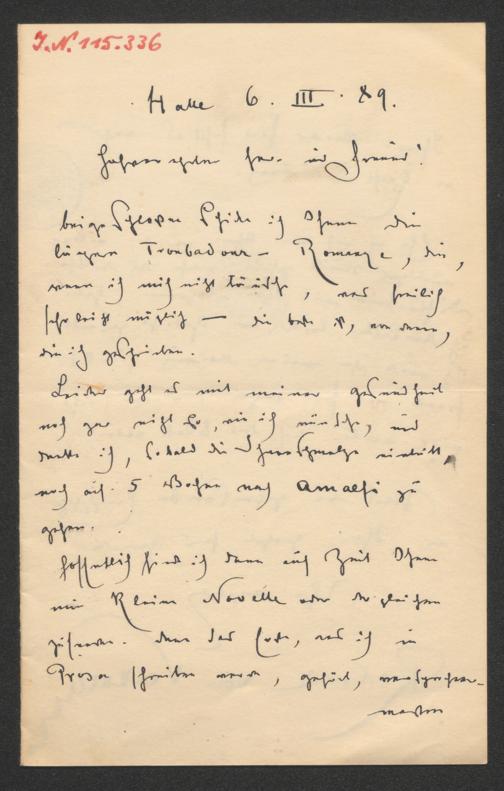 I.N. 115.336
Halle 6. III. 89.
Hochverehrter Herr und Freund!
beigeschlossen schicke ich Ihnen die
längere Troubadour-Romanze, die,
wenn ich mich nicht täusche, was freilich
sehr leicht möglich — die beste ist, von denen,
die ich geschrieben.
Leider geht es mit meiner Gesundheit
noch gar nicht so, wie ich wünsche, und
denke ich, sobald die Schneeschmelze eintritt,
noch auf 5 Wochen nach Amalfi zu
gehen.
Hoffentlich finde ich dann auch Zeit Ihnen
eine kleine Novelle oder dergleichen
zu senden. Denn das Erste, was ich in
Prosa schreiben werde, gehört,
maßen